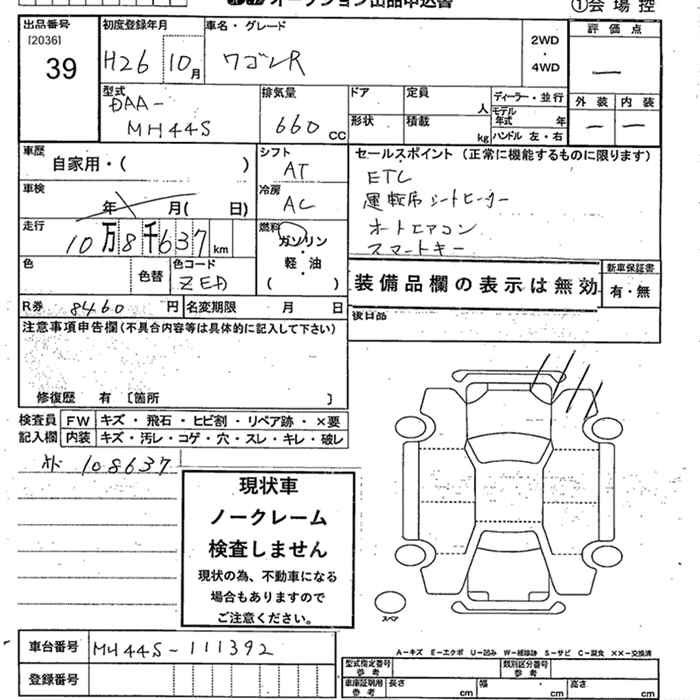 オークション出品申込書
①会場控
出品番号 [2036] 39
初度登録年月 H26 10月
車名・グレード ワゴンR
2WD・4WD
評価点 —
型式 DAA-MH44S
排気量 660 cc
ドア 定員 人
形状 積載 kg
ディーラー・並行
モデル年式 年
ハンドル 左・右
外装 — 内装 —
車歴 自家用・( )
シフト AT
車検 年 月( 日)
冷房 AC
走行 10万8千637 km
燃料 ガソリン・軽油 ( )
セールスポイント (正常に機能するものに限ります)
ETC
運転席シートヒーター
オートエアコン
スマートキー
色 色替
色コード ZED
装備品欄の表示は無効
新車保証書 有・無
R券 8460 円
名変期限 月 日
後日品
注意事項申告欄(不具合内容等は具体的に記入して下さい)
修復歴 有 [箇所 ]
検査員記入欄
FW キズ・飛石・ヒビ割・リペア跡・×要
内装 キズ・汚レ・コゲ・穴・スレ・キレ・破レ
108637
現状車
ノークレーム
検査しません
現状の為、不動車になる
場合もありますので
ご注意ください。
スペア
車台番号 MH44S-111392
登録番号
A-キズ E-エクボ U-凹み W-補修跡 S-サビ C-腐食 ××-交換済
型式指定番号 参考
類別区分番号 参考
車庫証明用 参考 長さ cm 幅 cm 高さ cm